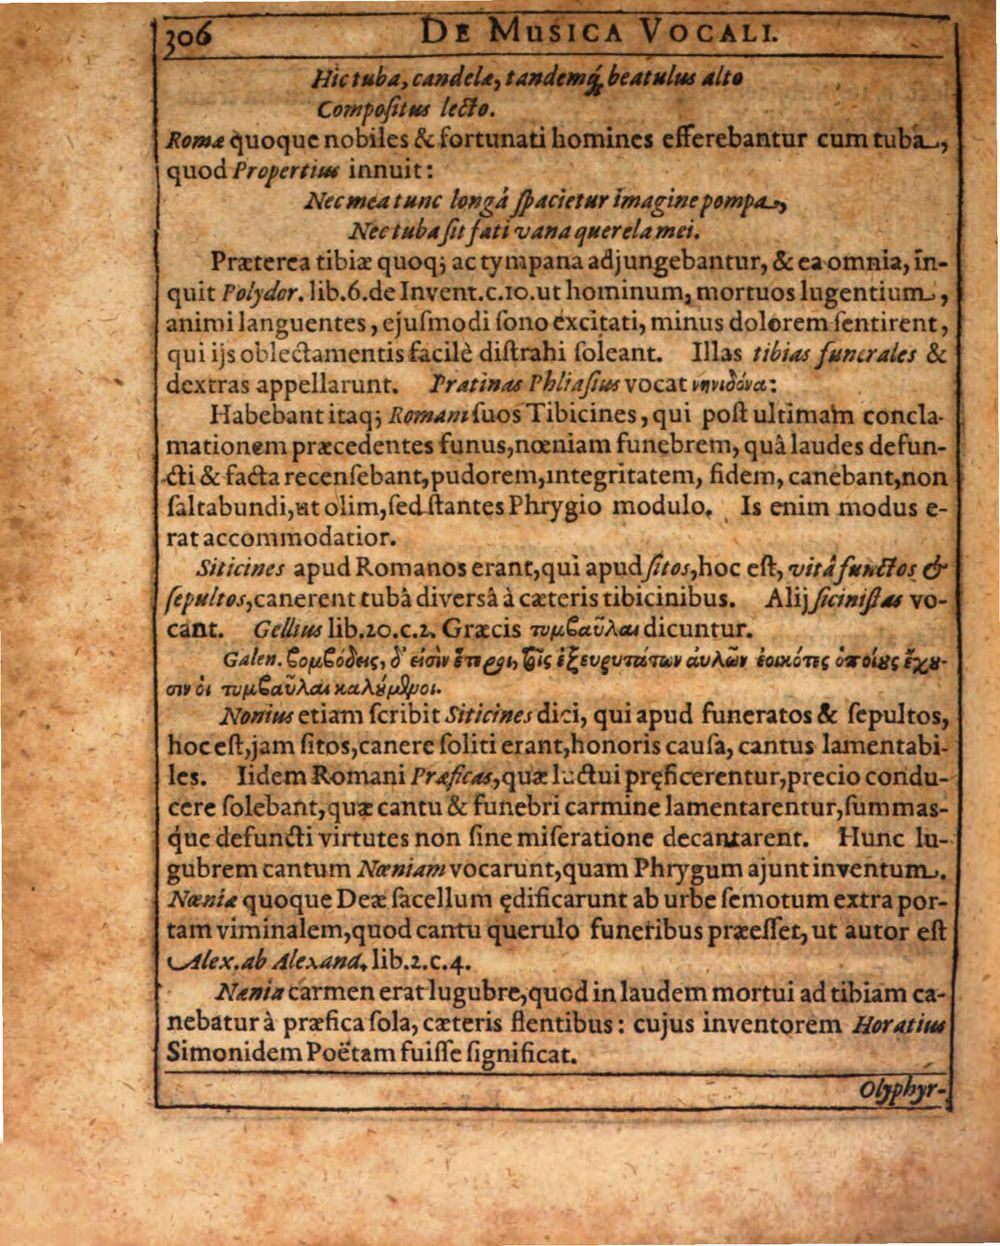 306 DE MUSICA VOCALI.
Hic tuba, candelæ, tandemq́ꝫ beatulus alto
Compoſitus lecto.
Romæ quoque nobiles & fortunati homines efferebantur cum tubâ,
quod Propertius innuit:
Nec mea tunc longâ ſpacietur imagine pompa,
Nec tuba ſit fati vana querela mei.
Præterea tibiæ quoqꝫ ac tympana adjungebantur, & ea omnia, in-
quit Polydor. lib.6.de Invent.c.10.ut hominum, mortuos lugentium,
animi languentes, ejuſmodi ſono excitati, minus dolorem ſentirent,
qui ijs oblectamentis facilè diſtrahi ſoleant. Illas tibias funerales &
dextras appellarunt. Pratinas Phliaſius vocat νηνιδόνα:
Habebant itaqꝫ Romani ſuos Tibicines, qui poſt ultimam concla-
mationem præcedentes funus,nœniam funebrem, quâ laudes defun-
cti & facta recenſebant,pudorem,integritatem, fidem, canebant,non
ſaltabundi,ut olim,ſed ſtantes Phrygio modulo. Is enim modus e-
rat accommodatior.
Siticines apud Romanos erant,qui apud ſitos,hoc eſt, vitâ functos &
ſepultos,canerent tubâ diversâ à cæteris tibicinibus. Alij ſiciniſtas vo-
cant. Gellius lib.20.c.2. Græcis τυμβαῦλαι dicuntur.
Galen. βομβόδεις, δ᾽ εἰσὶν ἕτεροι, τοῖς ἐξευρυτάτων αὐλῶν ἐοικότες ὁποίους ἔχου-
σιν οἱ τυμβαῦλαι καλούμενοι.
Nonius etiam ſcribit Siticines dici, qui apud funeratos & ſepultos,
hoc eſt,jam ſitos,canere ſoliti erant,honoris cauſa, cantus lamentabi-
les. Iidem Romani Præficas,quæ luctui pręficerentur,precio condu-
cere ſolebant,quæ cantu & funebri carmine lamentarentur,ſummas-
que defuncti virtutes non ſine miſeratione decantarent. Hunc lu-
gubrem cantum Nœniam vocarunt,quam Phrygum ajunt inventum.
Nœniæ quoque Deæ ſacellum ędificarunt ab urbe ſemotum extra por-
tam viminalem,quod cantu querulo funeribus præeſſet, ut autor eſt
Alex.ab Alexand. lib.2.c.4.
Nænia carmen erat lugubre,quod in laudem mortui ad tibiam ca-
nebatur à præfica ſola, cæteris flentibus: cujus inventorem Horatius
Simonidem Poëtam fuiſſe ſignificat.
Olyphyr-